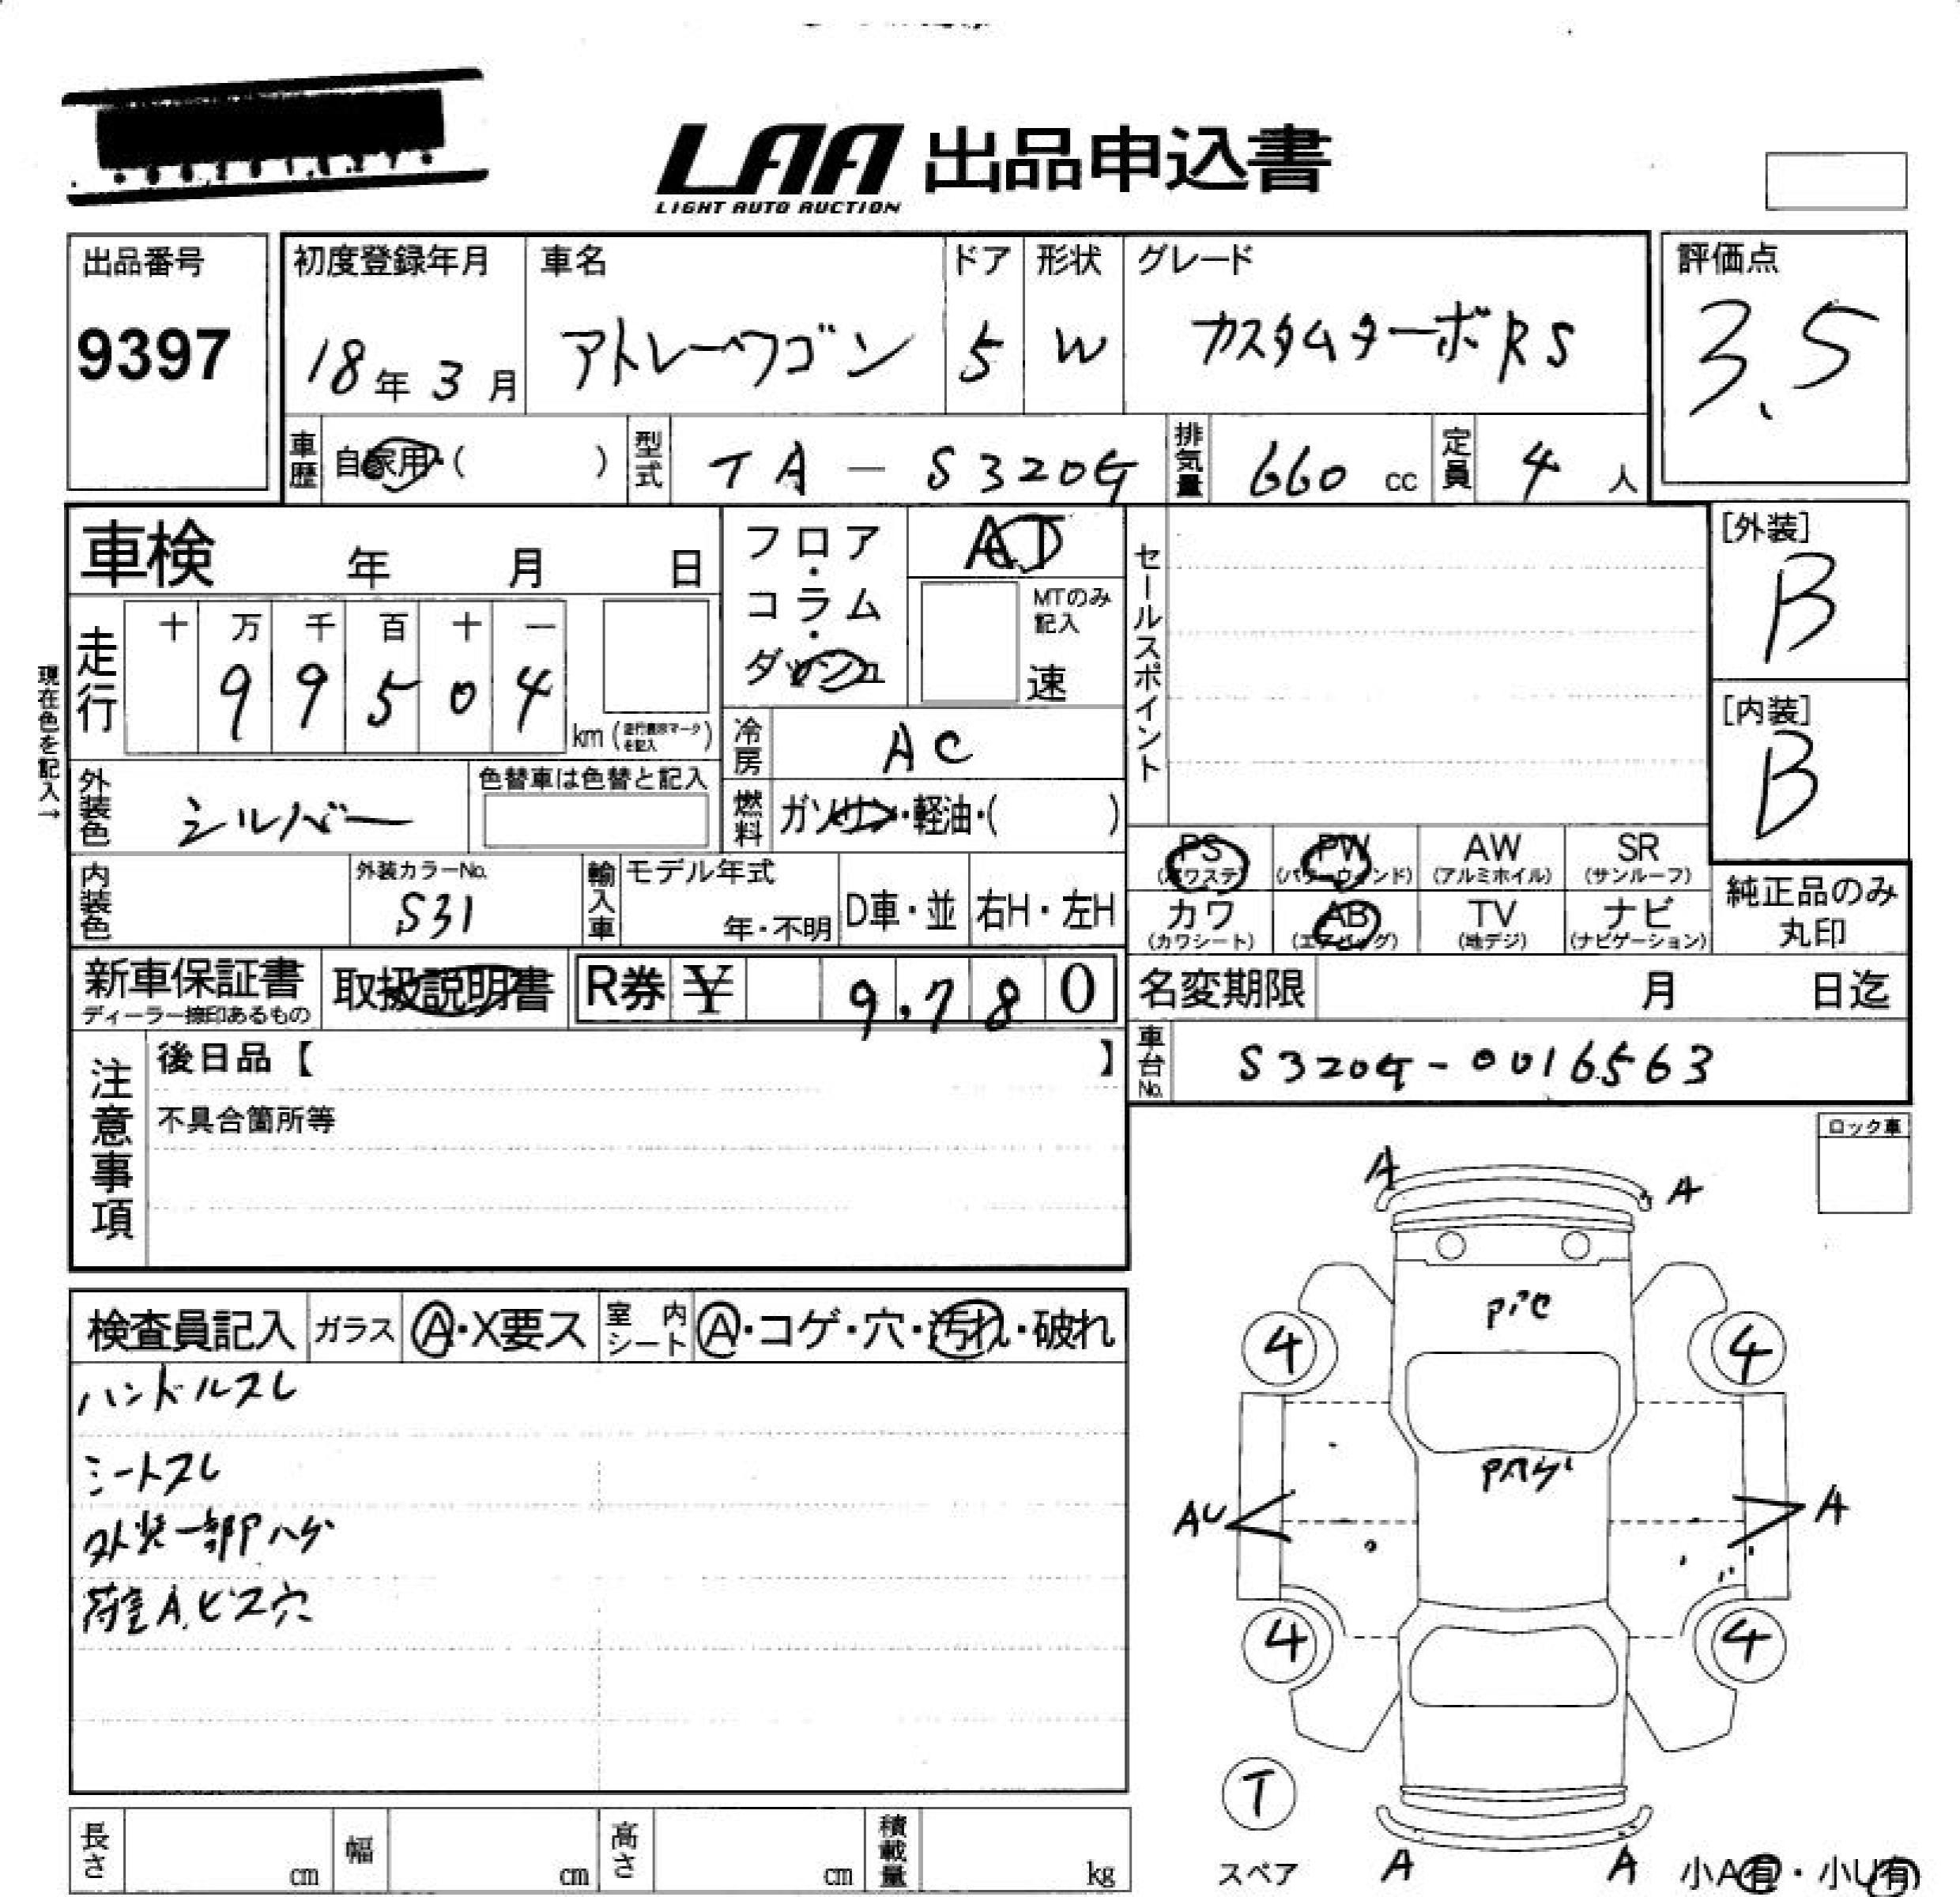 LAA 出品申込書
LIGHT AUTO AUCTION
出品番号
9397
初度登録年月
18年3月
車名
アトレーワゴン
ドア
5
形状
W
グレード
カスタムターボRS
評価点
3.5
車歴 自家用・( )
型式 TA-S320G
排気量 660 cc
定員 4 人
車検 年 月 日
現在色を記入→
走行
十 万 千 百 十 一
9 9 5 0 4
km (走行表示マークを記入)
フロア・コラム・ダッシュ
AT
MTのみ記入
速
冷房 AC
燃料 ガソリン・軽油・( )
セールスポイント
[外装]
B
[内装]
B
外装色 シルバー
色替車は色替と記入
内装色
外装カラーNo.
S31
輸入車
モデル年式
年・不明
D車・並
右H・左H
PS (パワステ)
PW (パワーウィンド)
AW (アルミホイル)
SR (サンルーフ)
カワ (カワシート)
AB (エアバッグ)
TV (地デジ)
ナビ (ナビゲーション)
純正品のみ丸印
新車保証書
ディーラー捺印あるもの
取扱説明書
R券 ¥ 9,780
名変期限 月 日迄
車台No. S320G-0016563
注意事項
後日品【 】
不具合箇所等
ロック車
検査員記入
ガラス A・X要ス
室内シート A・コゲ・穴・汚れ・破れ
ハンドルスレ
シートスレ
外装一部Pハゲ
荷室A.ビス穴
A
A
4
4
Pハゲ
AU
A
4
4
T
スペア
A
A
小A有・小U有
長さ cm
幅 cm
高さ cm
積載量 kg